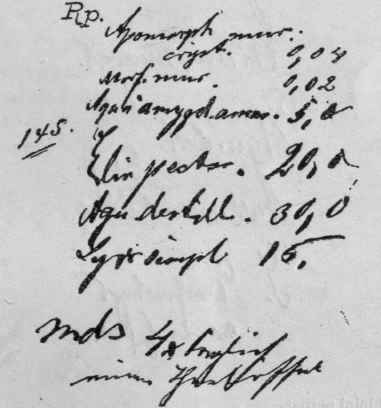 Rp.
Apomorph. mur.
cryst. 0,04
Morf. mur. 0,02
Aqu. amygd. amar. 5,0
145.
Elix pector. 20,0
Aqu destill. 30,0
Syr simpl 15,
mds 4x täglich
einen Theelöffel